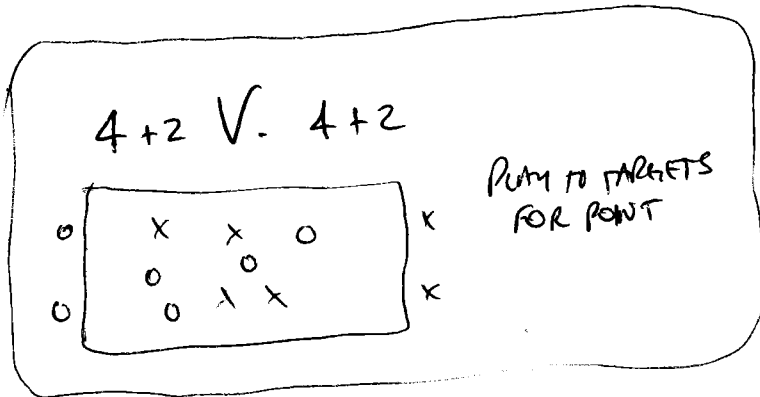 4 +2 V. 4 +2
PLAY TO TARGETS
FOR POINT
O X X O X
O O
O O X X X